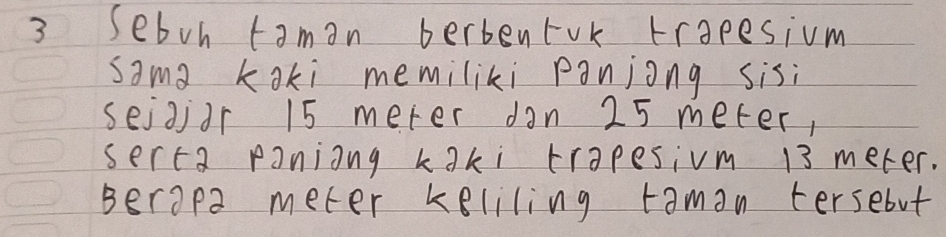 3 Sebuh taman berbentuk trapesium
sama kaki memiliki panjang sisi
sejajar 15 meter dan 25 meter,
serta panjang kaki trapesium 13 meter.
Berapa meter keliling taman tersebut